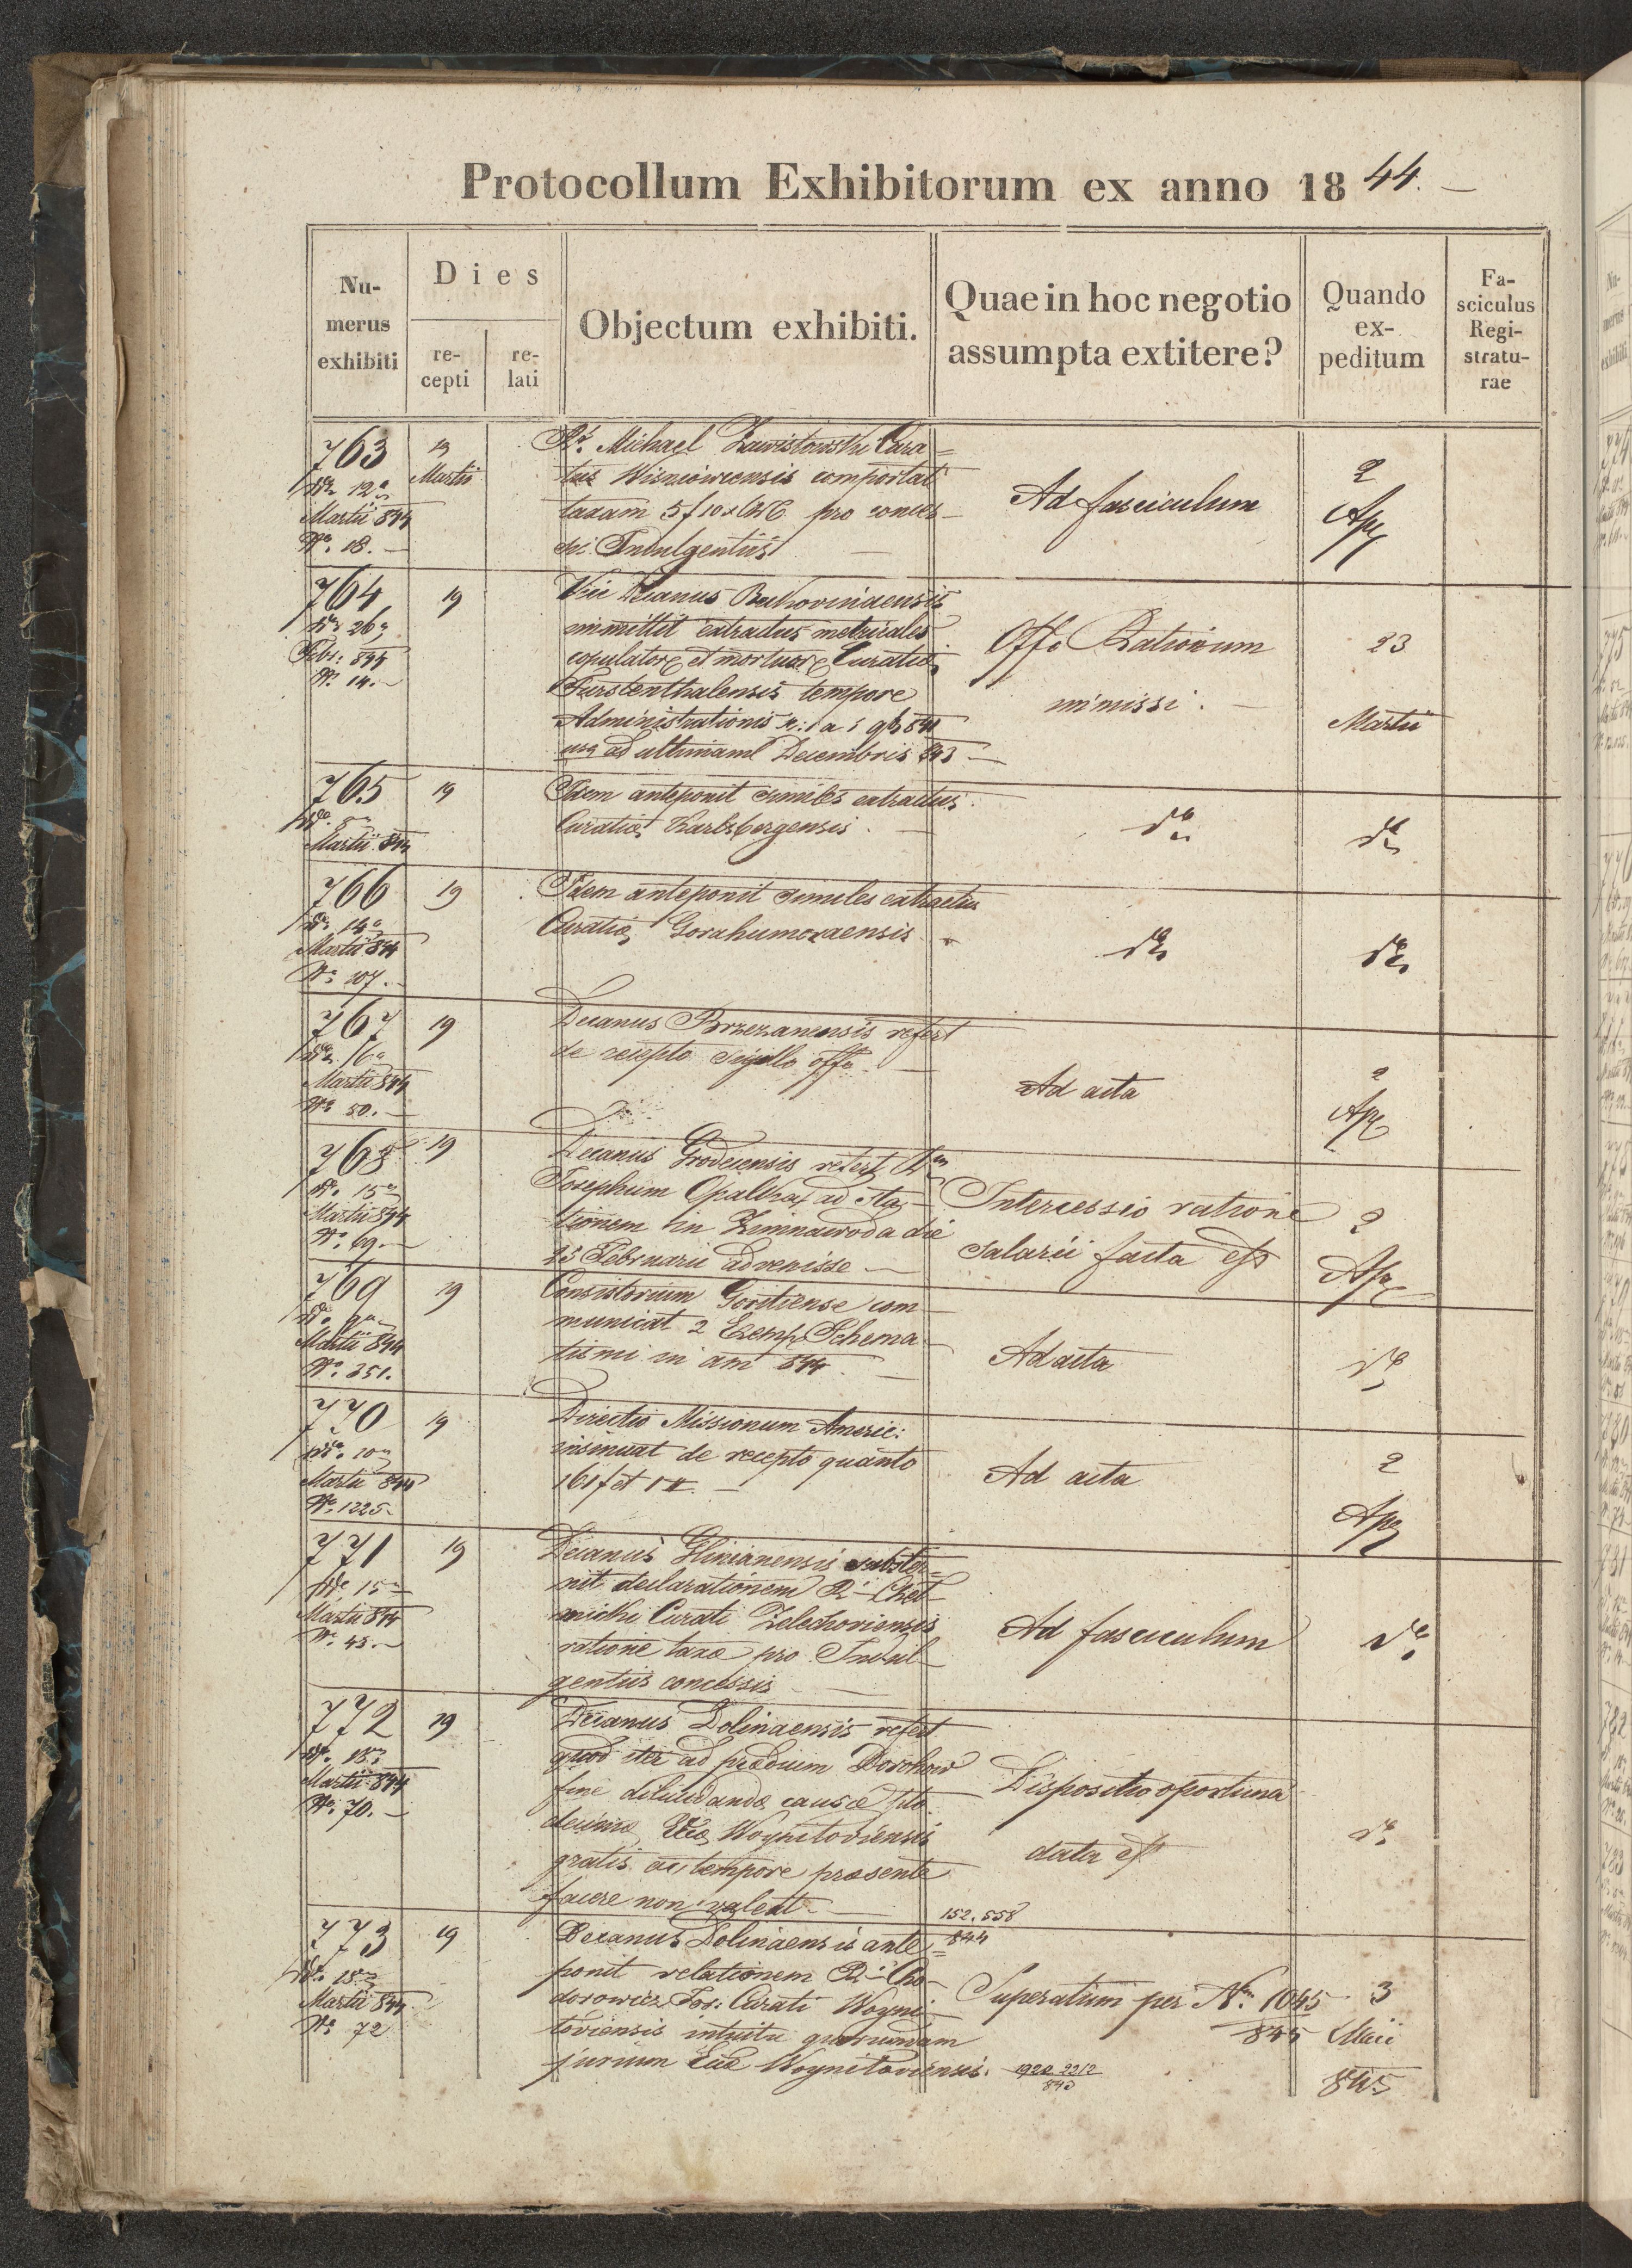 Protocollum Exhibitorum ex anno 1844.
Numerus exhibiti
Dies
recepti
relati
Objectum exhibiti.
Quae in hoc negotio assumpta extitere?
Quando expeditum
Fasciculus Registraturae
763
12
Martii 844
N. 18.
19
Martii
Michael Zawistowski Cura=
tus Wisniowcensis comportat
taxam 5 f 10 x pro conces-
sis Indulgentiis
Ad fasciculum
2
Apr
764
26
Febr: 844
N. 14.
19
Vice Decanus Bukovinaensis
immittit extractus metricales
copulator et mortuor Curatiae
Furstenthalensis tempore
Administrationis
usq ad ultimam Decembris 843
Offo Rationum
immissi.
23
Martii
765
Martii 844
19
Idem anteponit similes extractus
Curatiae Karlsbergensis.
do
do
766
14
Martii 844
N. 107.
19
Idem anteponit similes extractus
Curatiae Gorahumoraensis
do
do
767
16
Martii 844
N. 50.
19
Decanus Brzezanensis refert
de recepto Sigillo offo.
Ad acta
2
Apr
768
15
Martii 844
N. 69.
19
Decanus Grodecensis refert
Josephum ad Sta-
tionem in Zimnawoda die
15 Februarii advenisse
Intercessio ratione
salarii facta est
2
Apr
769
Martii 844
N. 351.
19
Consistorium Goritiense com
municat 2 Exemp Schema
tismi in an 844.
Ad acta
do
770
10
Martii 844
N. 1225.
19
Directio Missionum Americ:
insinuat de recepto quanto
161 f et 1 #.
Ad acta
2
Apr
771
15
Martii 844
N. 45.
19
Decanus Glinianensis subster=
nit declarationem R. Chet
micki Curati Zelechoviensis
ratione taxae pro Indul
gentiis concessis
Ad fasciculum
do
772
18
Martii 844
N. 70.
19
Decanus Dolinaensis refert
quod iter ad praedium Dorohow
fine dilucidandae causae
decimae Ecclae Woynitoviensis
gratis ac tempore praesente
facere non valeat
Dispositio oportuna
data est
do
773
18
Martii 844
N. 72
19
Decanus Dolinaensis ante=
ponit relationem R. Cho-
dorowicz Jos: Curati Woyni
toviensis intuitu quorumdam
jurium Ecclae Woynitoviensis.
152. 558
844
Superatum per N. 1045
845
3
Maii
845